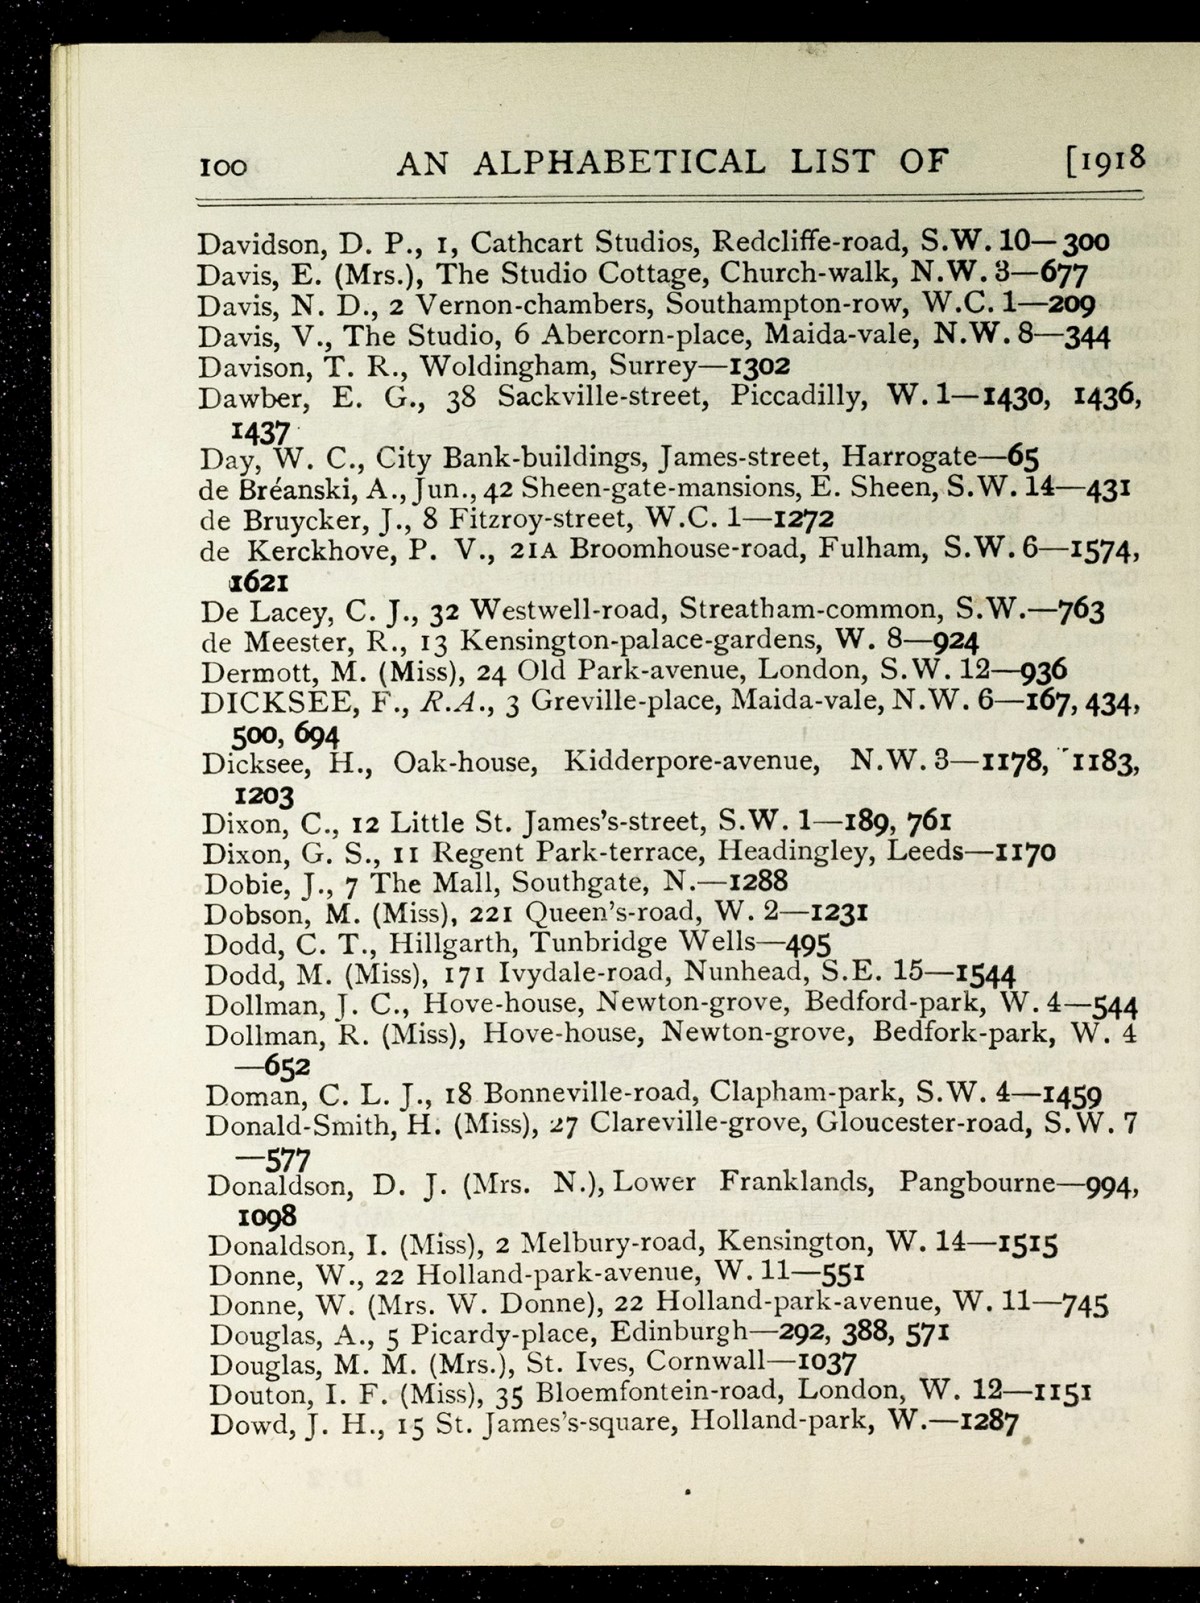 100 AN ALPHABETICAL LIST OF [1918
Davidson, D. P., 1, Cathcart Studios, Redcliffe-road, S.W. 10—300
Davis, E. (Mrs.), The Studio Cottage, Church-walk, N.W. 3—677
Davis, N. D., 2 Vernon-chambers, Southampton-row, W.C. 1—209
Davis, V., The Studio, 6 Abercorn-place, Maida-vale, N.W. 8—344
Davison, T. R., Woldingham, Surrey—1302
Dawber, E. G., 38 Sackville-street, Piccadilly, W. 1—1430, 1436,
1437
Day, W. C., City Bank-buildings, James-street, Harrogate—65
de Bréanski, A., Jun., 42 Sheen-gate-mansions, E. Sheen, S.W. 14—431
de Bruycker, J., 8 Fitzroy-street, W.C. 1—1272
de Kerckhove, P. V., 21A Broomhouse-road, Fulham, S.W. 6—1574,
1621
De Lacey, C. J., 32 Westwell-road, Streatham-common, S.W.—763
de Meester, R., 13 Kensington-palace-gardens, W. 8—924
Dermott, M. (Miss), 24 Old Park-avenue, London, S.W. 12—936
DICKSEE, F., R.A., 3 Greville-place, Maida-vale, N.W. 6—167, 434,
500, 694
Dicksee, H., Oak-house, Kidderpore-avenue, N.W. 3—1178, 1183,
1203
Dixon, C., 12 Little St. James's-street, S.W. 1—189, 761
Dixon, G. S., 11 Regent Park-terrace, Headingley, Leeds—1170
Dobie, J., 7 The Mall, Southgate, N.—1288
Dobson, M. (Miss), 221 Queen's-road, W. 2—1231
Dodd, C. T., Hillgarth, Tunbridge Wells—495
Dodd, M. (Miss), 171 Ivydale-road, Nunhead, S.E. 15—1544
Dollman, J. C., Hove-house, Newton-grove, Bedford-park, W. 4—544
Dollman, R. (Miss), Hove-house, Newton-grove, Bedfork-park, W. 4
—652
Doman, C. L. J., 18 Bonneville-road, Clapham-park, S.W. 4—1459
Donald-Smith, H. (Miss), 27 Clareville-grove, Gloucester-road, S.W. 7
—577
Donaldson, D. J. (Mrs. N.), Lower Franklands, Pangbourne—994,
1098
Donaldson, I. (Miss), 2 Melbury-road, Kensington, W. 14—1515
Donne, W., 22 Holland-park-avenue, W. 11—551
Donne, W. (Mrs. W. Donne), 22 Holland-park-avenue, W. 11—745
Douglas, A., 5 Picardy-place, Edinburgh—292, 388, 571
Douglas, M. M. (Mrs.), St. Ives, Cornwall—1037
Douton, I. F. (Miss), 35 Bloemfontein-road, London, W. 12—1151
Dowd, J. H., 15 St. James's-square, Holland-park, W.—1287